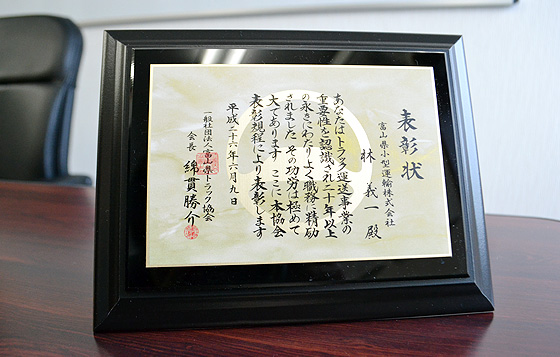 表彰状
富山県小型運輸株式会社
林義一殿
あなたはトラック運送事業の
重要性を認識され二十年以上
の永きにわたりよく職務に精励
されました その功労は極めて
大であります ここに本協会
表彰規程により表彰します
平成二十六年六月九日
一般社団法人富山県トラック協会
会長 綿貫勝介